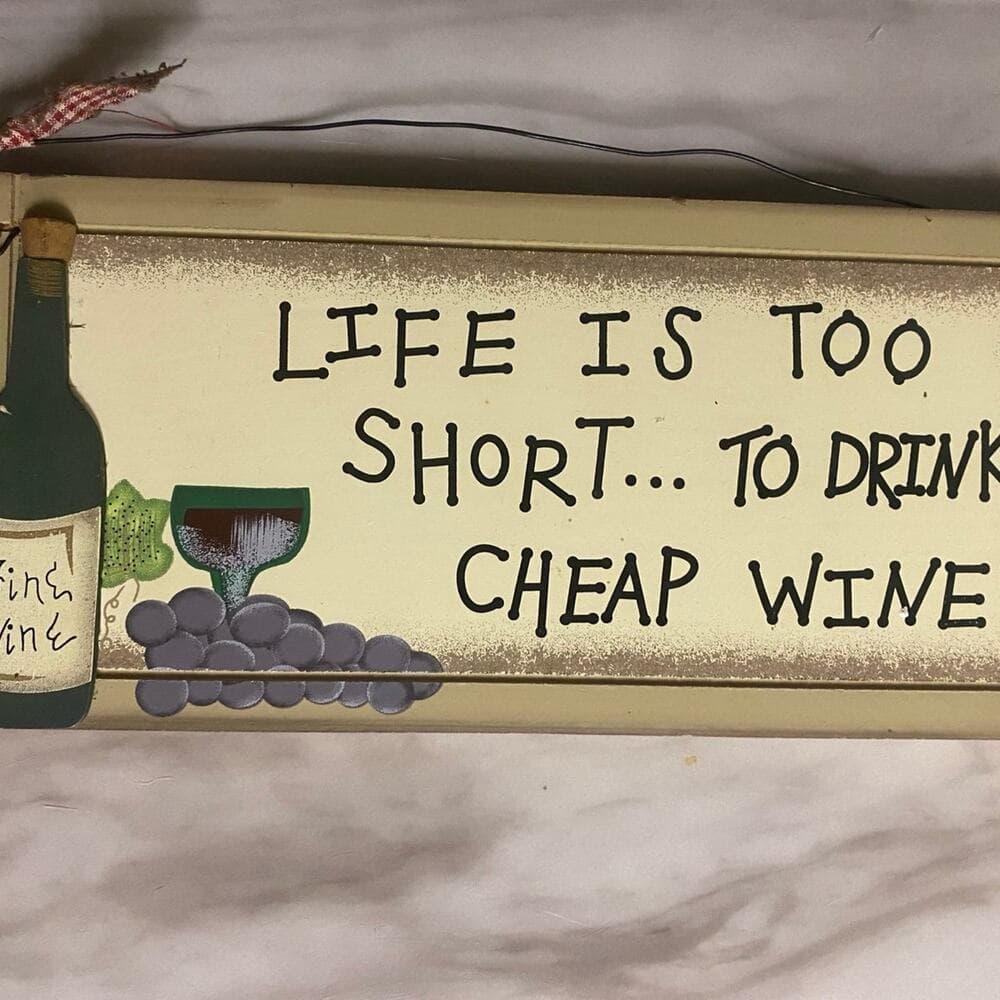 LIFE IS TOO
SHORT... TO DRINK
CHEAP WINE
Fine
Wine